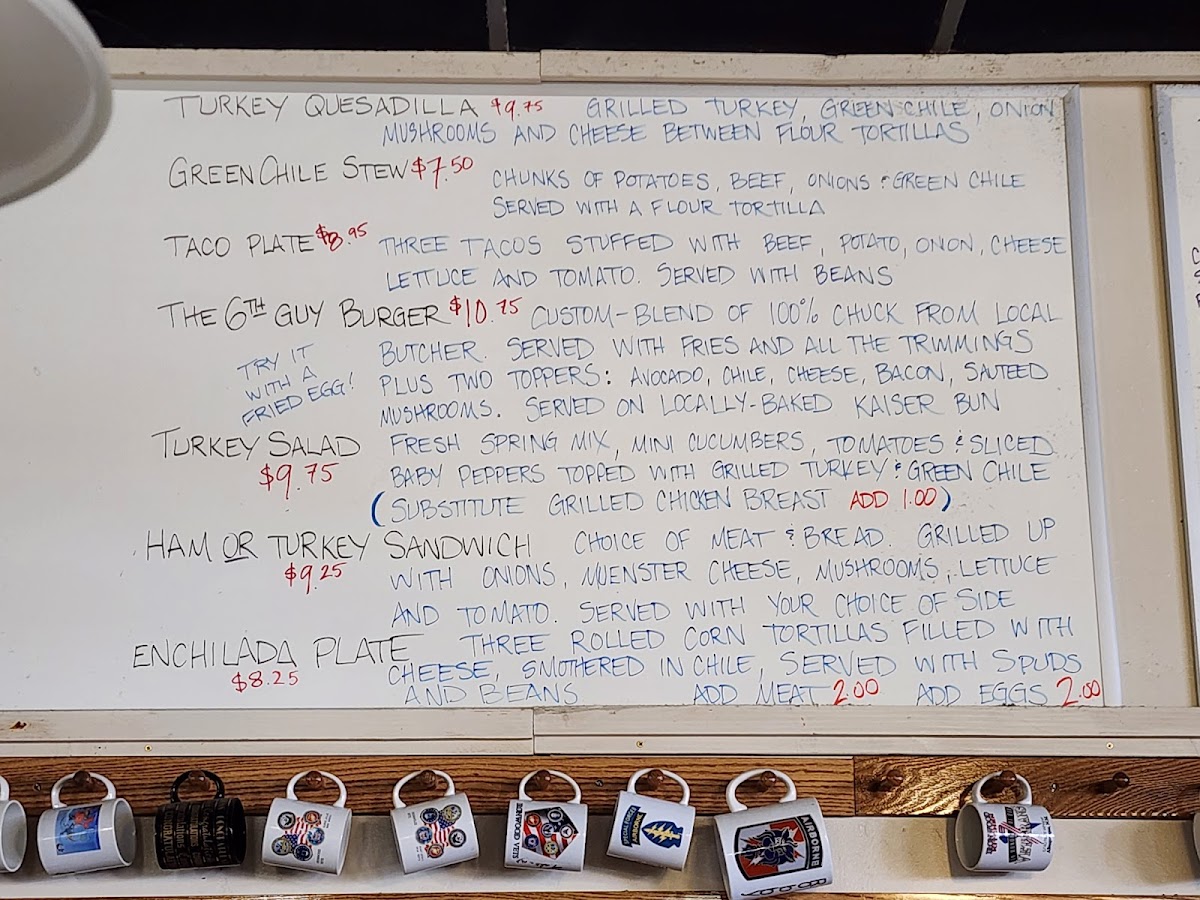 TURKEY QUESADILLA $9.75 GRILLED TURKEY, GREEN CHILE, ONION
MUSHROOMS AND CHEESE BETWEEN FLOUR TORTILLAS
GREEN CHILE STEW $7.50 CHUNKS OF POTATOES, BEEF, ONIONS & GREEN CHILE
SERVED WITH A FLOUR TORTILLA
TACO PLATE $8.95 THREE TACOS STUFFED WITH BEEF, POTATO, ONION, CHEESE
LETTUCE AND TOMATO. SERVED WITH BEANS
THE 6TH GUY BURGER $10.75 CUSTOM-BLEND OF 100% CHUCK FROM LOCAL
BUTCHER. SERVED WITH FRIES AND ALL THE TRIMMINGS
PLUS TWO TOPPERS: AVOCADO, CHILE, CHEESE, BACON, SAUTEED
MUSHROOMS. SERVED ON LOCALLY-BAKED KAISER BUN
TRY IT
WITH A
FRIED EGG!
TURKEY SALAD FRESH SPRING MIX, MINI CUCUMBERS, TOMATOES & SLICED
$9.75 BABY PEPPERS TOPPED WITH GRILLED TURKEY & GREEN CHILE
(SUBSTITUTE GRILLED CHICKEN BREAST ADD 1.00)
HAM OR TURKEY SANDWICH CHOICE OF MEAT & BREAD. GRILLED UP
$9.25 WITH ONIONS, MUENSTER CHEESE, MUSHROOMS, LETTUCE
AND TOMATO. SERVED WITH YOUR CHOICE OF SIDE
ENCHILADA PLATE THREE ROLLED CORN TORTILLAS FILLED WITH
$8.25 CHEESE, SMOTHERED IN CHILE, SERVED WITH SPUDS
AND BEANS ADD MEAT 2.00 ADD EGGS 2.00
AIRBORNE